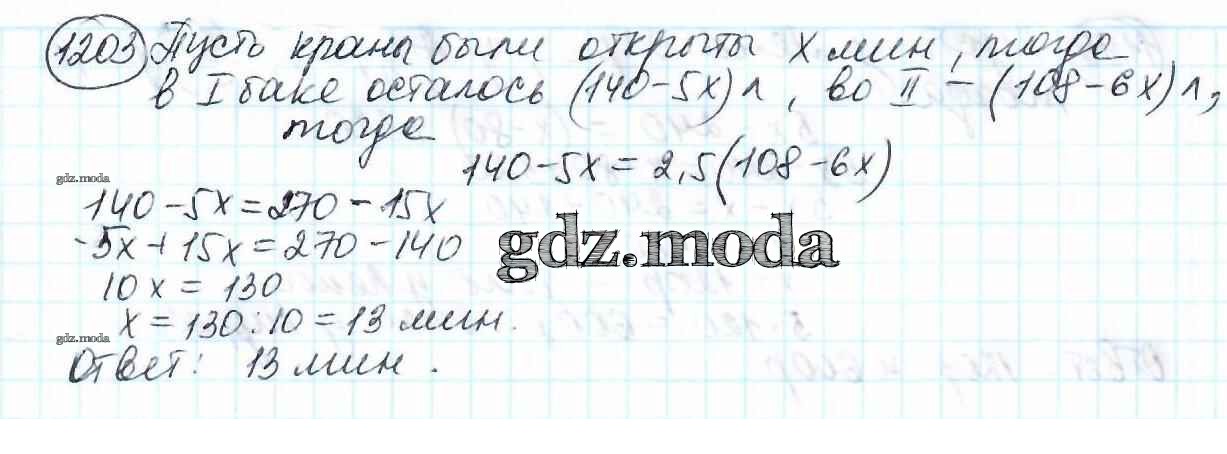 1203 Пусть краны были открыты x мин, тогда
в I баке осталось (140-5x) л, во II - (108-6x) л,
тогда
140-5x=2,5(108-6x)
gdz.moda
140-5x=270-15x
-5x+15x=270-140
gdz.moda
10x = 130
x=130:10=13 мин.
gdz.moda
Ответ: 13 мин.